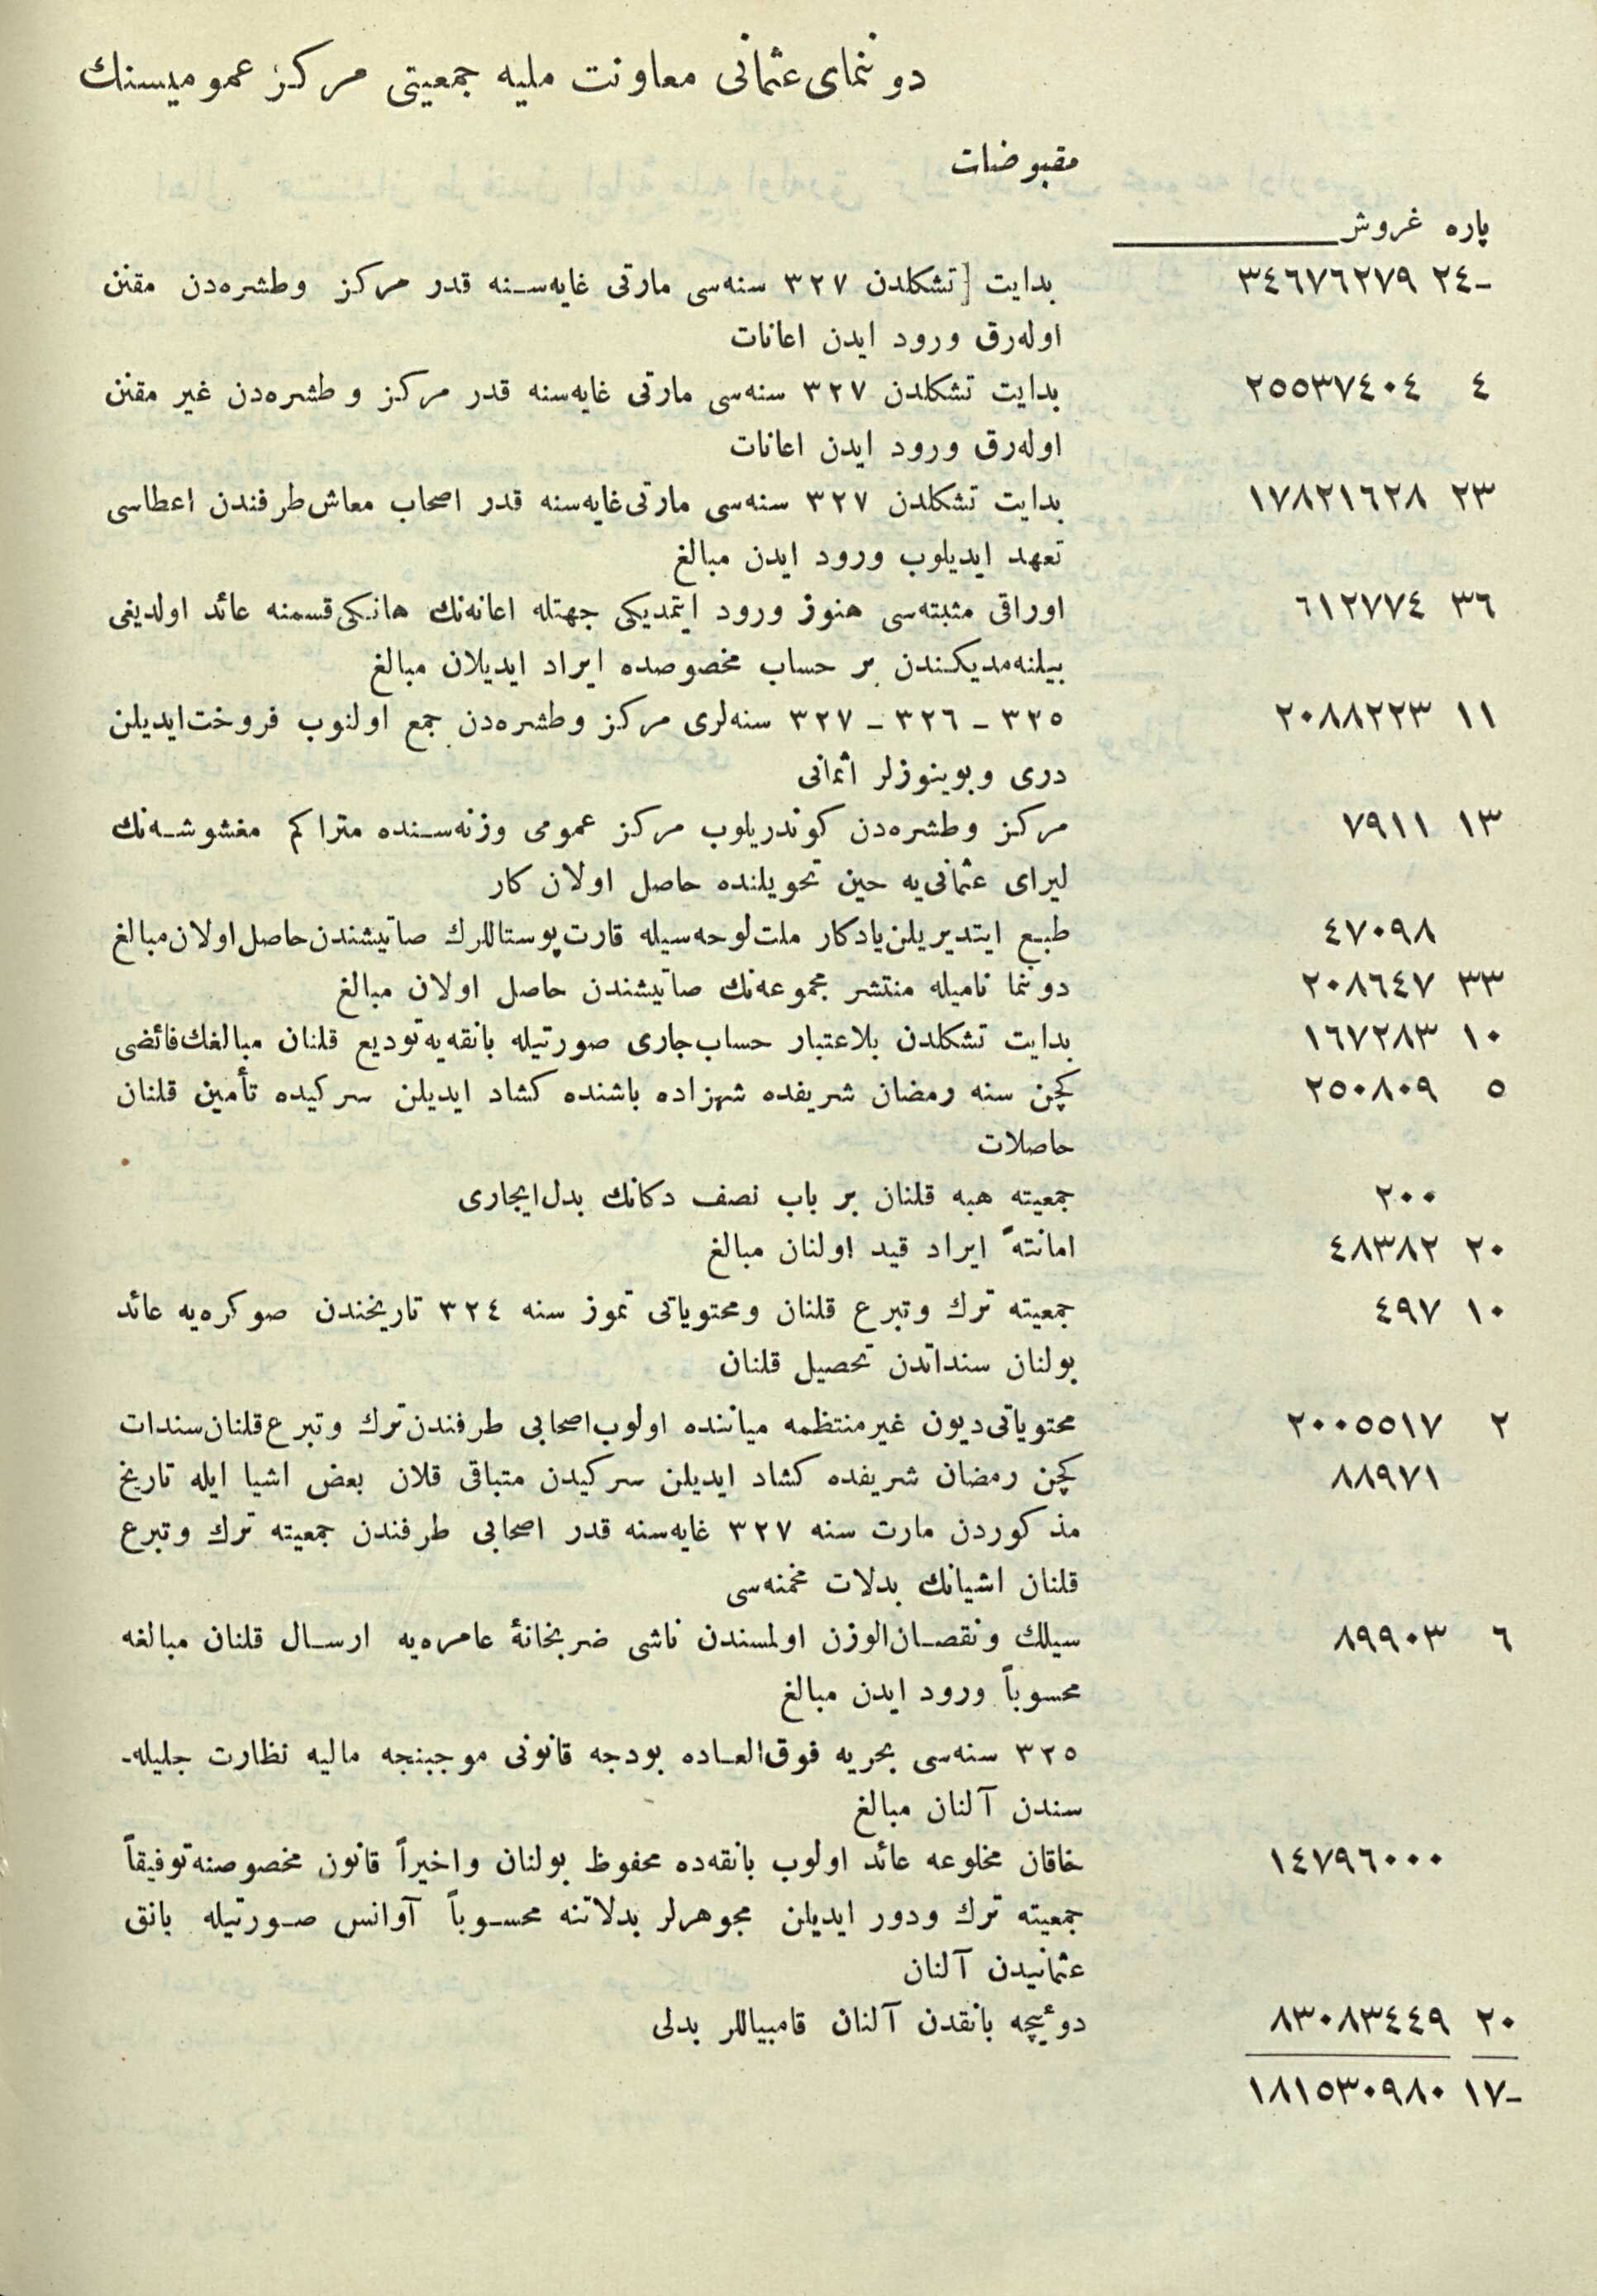 دوننمای عثمانی معاونت ملیه جمعیتی مرکز عمومیسنك
مقبوضات
پاره غروش
٢٤ـ ٣٤٦٧٦٢٧٩ بدایت [تشکلدن ٣٢٧ سنه‌سی مارتی غایه‌سـنه قدر مرکز وطشره‌دن مقنن
اوله‌رق ورود ایدن اعانات
٤ ٢٥٥٣٧٤٠٤ بدایت تشکلدن ٣٢٧ سنه‌سی مارتی غایه‌سنه قدر مرکز وطشره‌دن غیر مقنن
اوله‌رق ورود ایدن اعانات
٢٣ ١٧٨٢١٦٢٨ بدایت تشکلدن ٣٢٧ سنه‌سی مارتی غایه‌سنه قدر اصحاب معاش طرفندن اعطاسی
تعهد ایدیلوب ورود ایدن مبالغ
٣٦ ٦١٢٧٧٤ اوراقی مثبته‌سی هنوز ورود ایتمدیکی جهتله اعانه‌نك هانکی قسمنه عائد اولدیغی
بیلنه‌مدیکندن بر حساب مخصوصده ایراد ایدیلان مبالغ
١١ ٢٠٨٨٢٢٣ ٣٢٥ ـ ٣٢٦ ـ ٣٢٧ سنه‌لری مرکز وطشره‌دن جمع اولنوب فروخت ایدیلن
دری وبوینوزلر اثمانی
١٣ ٧٩١١ مرکز وطشره‌دن کوندریلوب مرکز عمومی وزنه‌سـنده متراکم مغشوشـه‌نك
لیرای عثمانی‌یه حین تحویلنده حاصل اولان کار
٤٧٠٩٨ طبع ایتدیریلن یادکار ملت لوحه‌سیله قارت پوستاللرك صاتیشندن حاصل اولان مبالغ
٣٣ ٢٠٨٦٤٧ دوننما نامیله منتشر مجموعه‌نك صاتیشندن حاصل اولان مبالغ
١٠ ١٦٧٢٨٣ بدایت تشکلدن بلاعتبار حساب جاری صورتیله بانقه‌یه تودیع قلنان مبالغك فائضی
٥ ٢٥٠٨٠٩ کچن سنه رمضان شریفده شهزاده باشنده کشاد ایدیلن سرکیده تأمین قلنان
حاصلات
٢٠٠ جمعیته هبه قلنان بر باب نصف دکانك بدل ایجاری
٢٠ ٤٨٣٨٢ امانتهً ایراد قید اولنان مبالغ
١٠ ٤٩٧ جمعیته ترك وتبرع قلنان ومحتویاتی تموز سنه ٣٢٤ تاریخندن صوکره‌یه عائد
بولنان سنداتدن تحصیل قلنان
٢ ٢٠٠٥٥١٧ محتویاتی دیون غیرمنتظمه میاننده اولوب اصحابی طرفندن ترك وتبرع قلنان سندات
٨٨٩٧١ کچن رمضان شریفده کشاد ایدیلن سرکیدن متباقی قلان بعض اشیا ایله تاریخ
مذکوردن مارت سنه ٣٢٧ غایه‌سنه قدر اصحابی طرفندن جمعیته ترك وتبرع
قلنان اشیانك بدلات مخمنه‌سی
٦ ٨٩٩٠٣ سیلك ونقصـان‌الوزن اولمسندن ناشی ضربخانهٔ عامره‌یه ارسـال قلنان مبالغه
محسوباً ورود ایدن مبالغ
٣٢٥ سنه‌سی بحریه فوق‌العـاده بودجه قانونی موجبنجه مالیه نظارت جلیله‌ـ
سندن آلنان مبالغ
١٤٧٩٦٠٠٠ خاقان مخلوعه عائد اولوب بانقه‌ده محفوظ بولنان واخیراً قانون مخصوصنه توفیقاً
جمعیته ترك ودور ایدیلن مجوهرلر بدلاتنه محسـوباً آوانس صـورتیله بانق
عثمانیدن آلنان
٢٠ ٨٣٠٨٣٤٤٩ دوئیچه بانقدن آلنان قامبیاللر بدلی
١٧ـ ١٨١٥٣٠٩٨٠